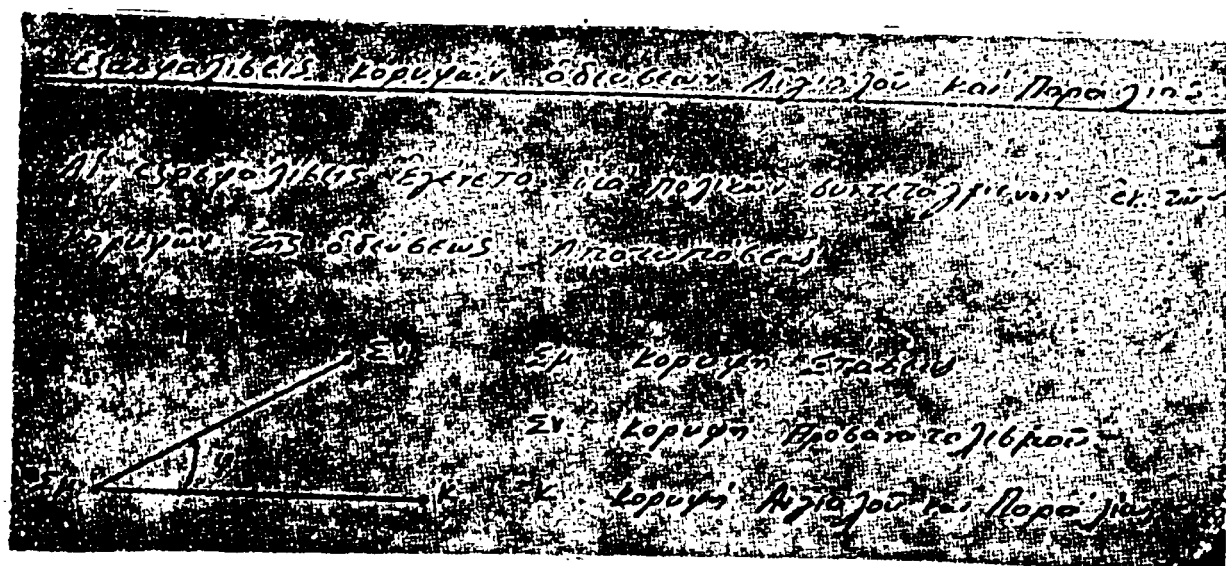 Ἐξασφαλίσεις κορυφῶν ὁδεύσεων Αἰγιαλοῦ καί Παραλίας
Αἱ ἐξασφαλίσεις Ἐγένετο διά πολικῶν συντεταγμένων ἐκ τῶν
κορυφῶν τῆς ὁδεύσεως Ἀποτυπώσεως
Σν Σμ κορυφή Στάσεως
Σν. κορυφή Προσανατολισμοῦ
Σμ φ κ κ. κορυφή Αἰγιαλοῦ καί Παραλίας